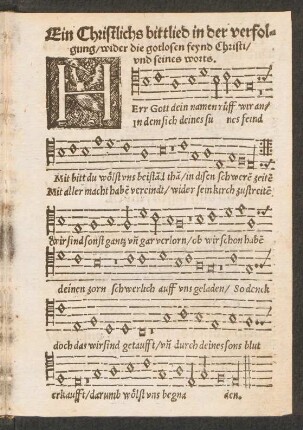 Ein Christlichs bittlied in der verfol-
gung/wider die gotlosen feynd Christi/
vnd seines worts.
HErr Gott dein namen rüff wir an/
in dem sich deines su nes feind
Mit bitt du wölst vns beistãd thũ/in disen schwerẽ zeitẽ
Mit aller macht habẽ vereindt/wider sein kirch zustreitẽ
Wir sind sonst gantz vñ gar verlorn/ob wir schon habẽ
deinen zorn schwerlich auff vns geladen/ So denck
doch das wir sind getaufft/vñ durch deines sons blut
erkaufft/darumb wölst vns begna den.